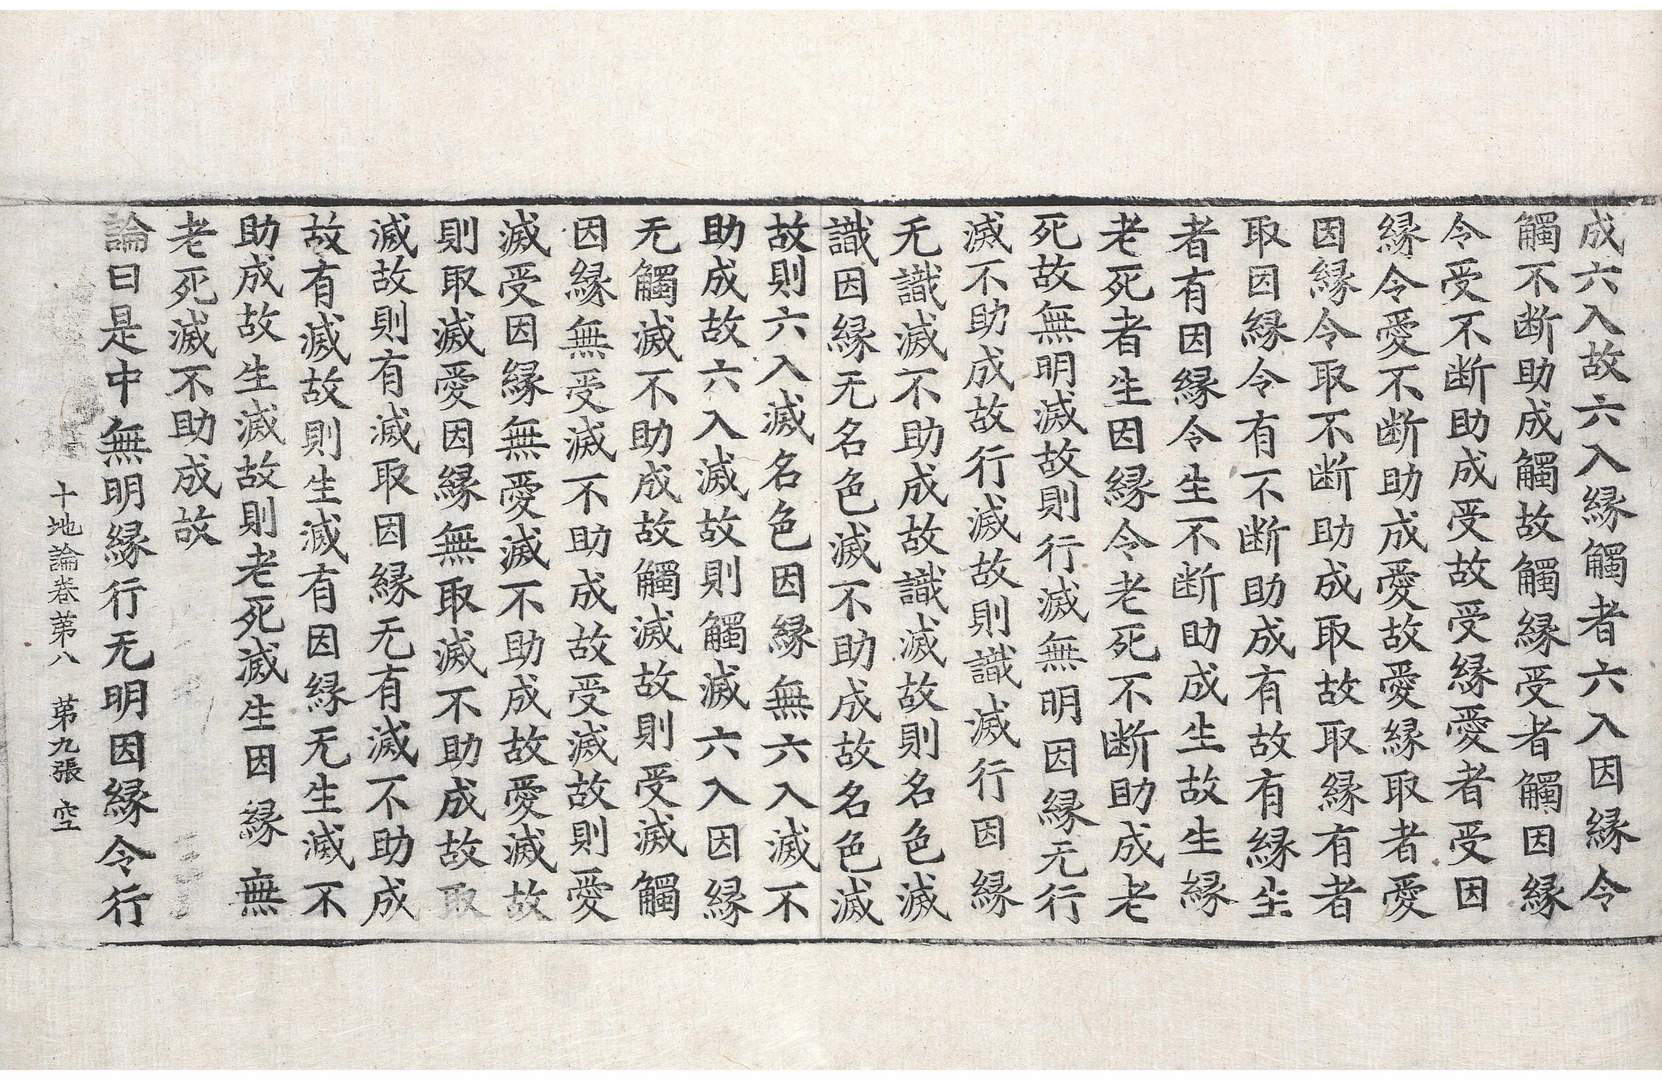 成六入故六入縁觸者六入因縁令
觸不断助成觸故觸縁受者觸因縁
令受不断助成受故受縁愛者受因
縁令愛不断助成愛故愛縁取者愛
因縁令取不断助成取故取縁有者
取因縁令有不断助成有故有縁生
者有因縁令生不断助成生故生縁
老死者生因縁令老死不断助成老
死故無明滅故則行滅無明因縁无行
滅不助成故行滅故則識滅行因縁
无識滅不助成故識滅故則名色滅
識因縁无名色滅不助成故名色滅
故則六入滅名色因縁無六入滅不
助成故六入滅故則觸滅六入因縁
无觸滅不助成故觸滅故則受滅觸
因縁無受滅不助成故受滅故則愛
滅受因縁無愛滅不助成故愛滅故
則取滅愛因縁無取滅不助成故取
滅故則有滅取因縁无有滅不助成
故有滅故則生滅有因縁无生滅不
助成故生滅故則老死滅生因縁無
老死滅不助成故
論曰是中無明縁行无明因縁令行
十地論卷第八 第九張 空